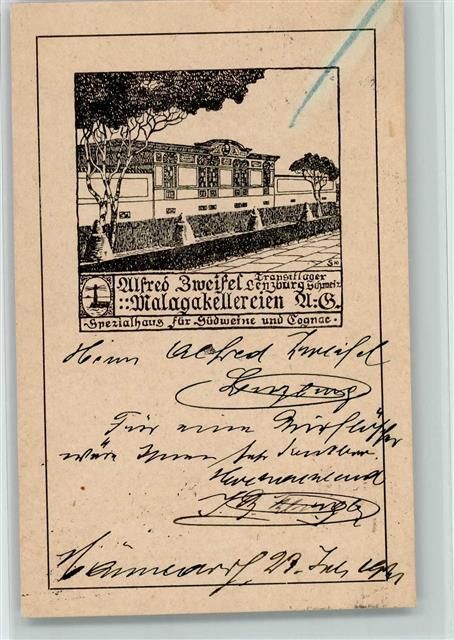 Alfred Zweifel
Transitlager
Lenzburg Schweiz
::Malagakellereien A:G.
·Spezialhaus für Südweine und Cognac·
Herrn Alfred Zweifel
Lenzburg
Für eine
wäre Ihnen sehr dankbar
Hochachtend
Männedorf, 23. Juli